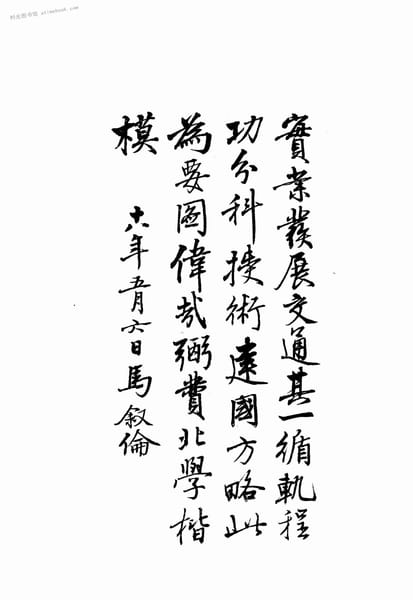 时光图书馆 atimebook.com
實業發展交通其一循軌程
功分科技術建國方略此
為要圖偉哉弼費北學楷
模
十八年五月六日馬叙倫